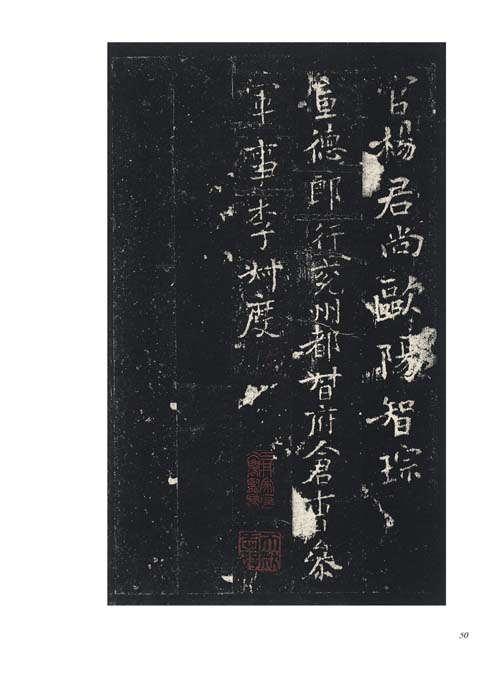 官楊君尚歐陽智琮
宣德郎行兗州都督府倉曹叅
軍事李度
50